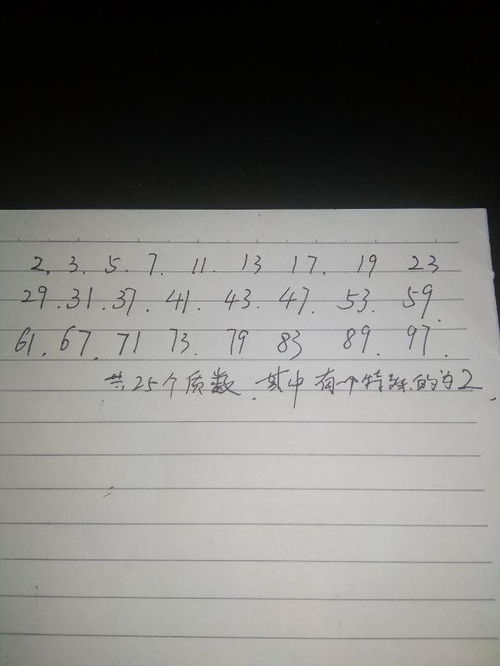 2. 3. 5. 7. 11. 13 17. 19 23
29. 31. 37. 41. 43. 47. 53. 59.
61. 67. 71 73. 79 83 89. 97.
共25个质数.其中有一个特殊的为2.